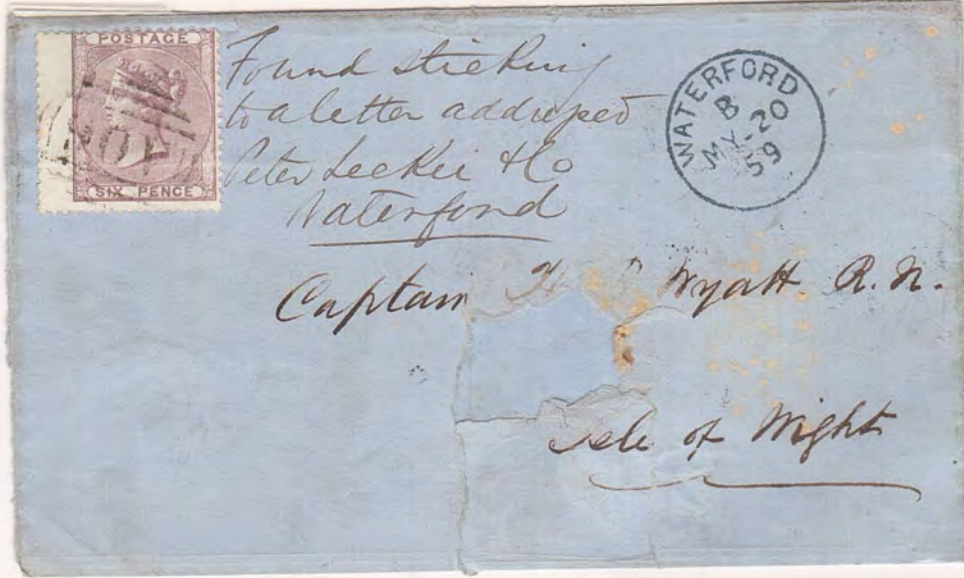 POSTAGE
SIX PENCE
Found sticking
to a letter addressed
Peter Leckie & Co
Waterford
WATERFORD
B
MY-20
59
Captain H Wyatt R.N.
Isle of Wight